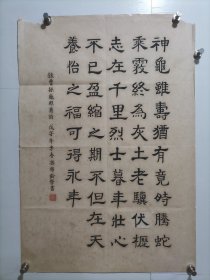 神龜雖壽猶有竟時騰蛇
乘霧終為灰土老驥伏櫪
志在千里烈士暮年壯心
不已盈縮之期不但在天
養怡之福可得永年
錄曹操龜雖壽詩